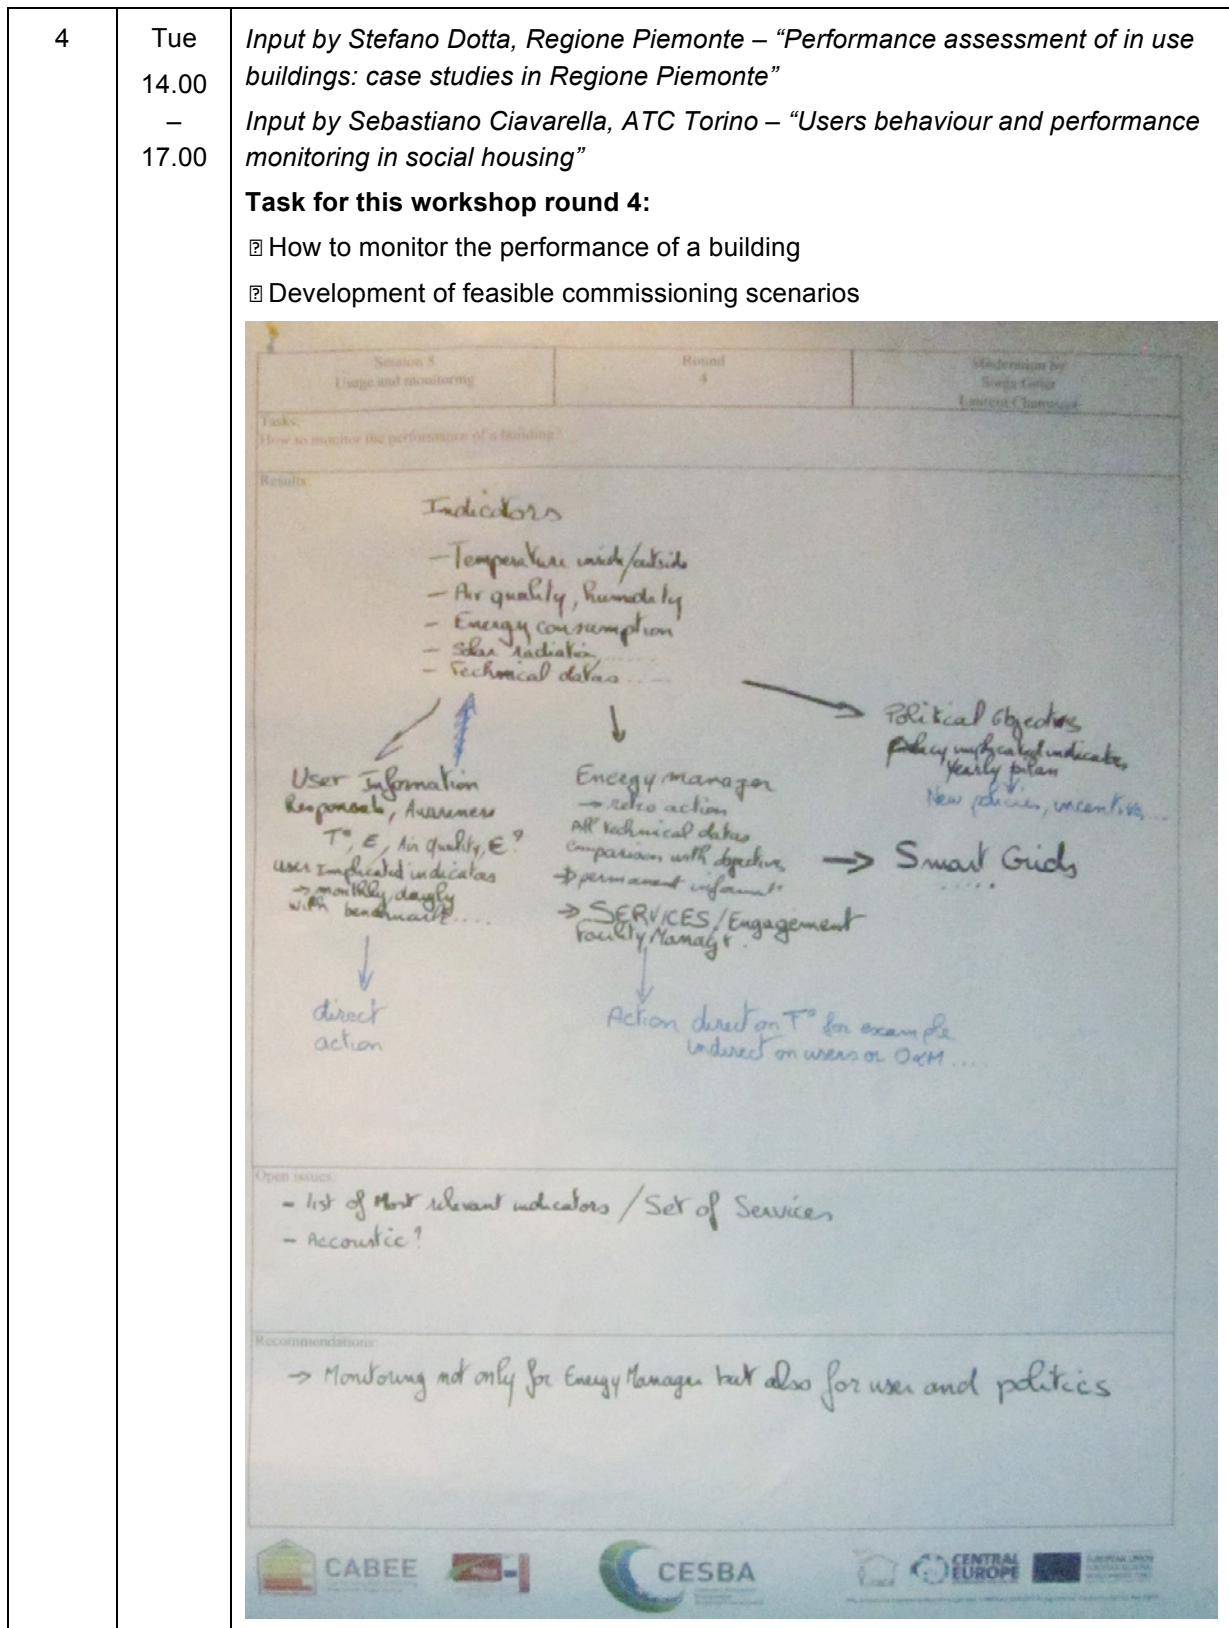 4
Tue
14.00
–
17.00
Input by Stefano Dotta, Regione Piemonte – “Performance assessment of in use
buildings: case studies in Regione Piemonte”
Input by Sebastiano Ciavarella, ATC Torino – “Users behaviour and performance
monitoring in social housing”
Task for this workshop round 4:
How to monitor the performance of a building
Development of feasible commissioning scenarios
Session 8
Usage and monitoring
Round
4
Moderation by
Laurent
Tasks:
How to monitor the performance of a building?
Results:
Indicators
– Temperature inside/outside
– Air quality, humidity
– Energy consumption
– Solar radiation.....
– Technical datas.....
User Information
Awareness
T°, E, Air Quality, € ?
User Implicated indicators
→ monthly
with benchmark....
direct
action
Energy manager
→ retro action
All technical datas
comparison with objectives
→ permanent
→ SERVICES/Engagement
Facility
Action direct on T° for example
indirect on users or O&M....
Political Objectives
indicators
Yearly
New policies, incentives...
→ Smart Grids
.....
Open issues:
– list of Most relevant indicators / Set of Services
– Accoustic?
Recommendations:
→ Monitoring not only for Energy Manager but also for user and politics
CABEE
CESBA
CENTRAL
EUROPE
EUROPEAN UNION